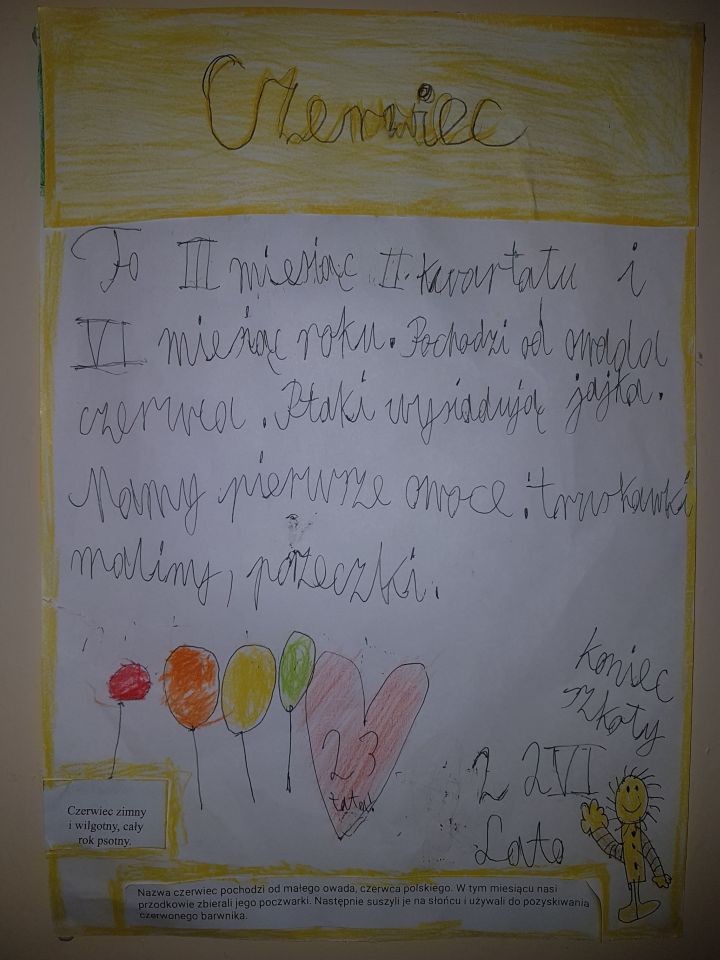 Czerwiec
To III miesiąc II kwartału i
VI miesiąc roku. Pochodzi od owada
czerwca. Ptaki wysiadują jajka.
Mamy pierwsze owoce: truskawki
maliny, porzeczki.
koniec
szkoły
23
tata
22 VI
Lato
Czerwiec zimny
i wilgotny, cały
rok psotny.
Nazwa czerwiec pochodzi od małego owada, czerwca polskiego. W tym miesiącu nasi
przodkowie zbierali jego poczwarki. Następnie suszyli je na słońcu i używali do pozyskiwania
czerwonego barwnika.